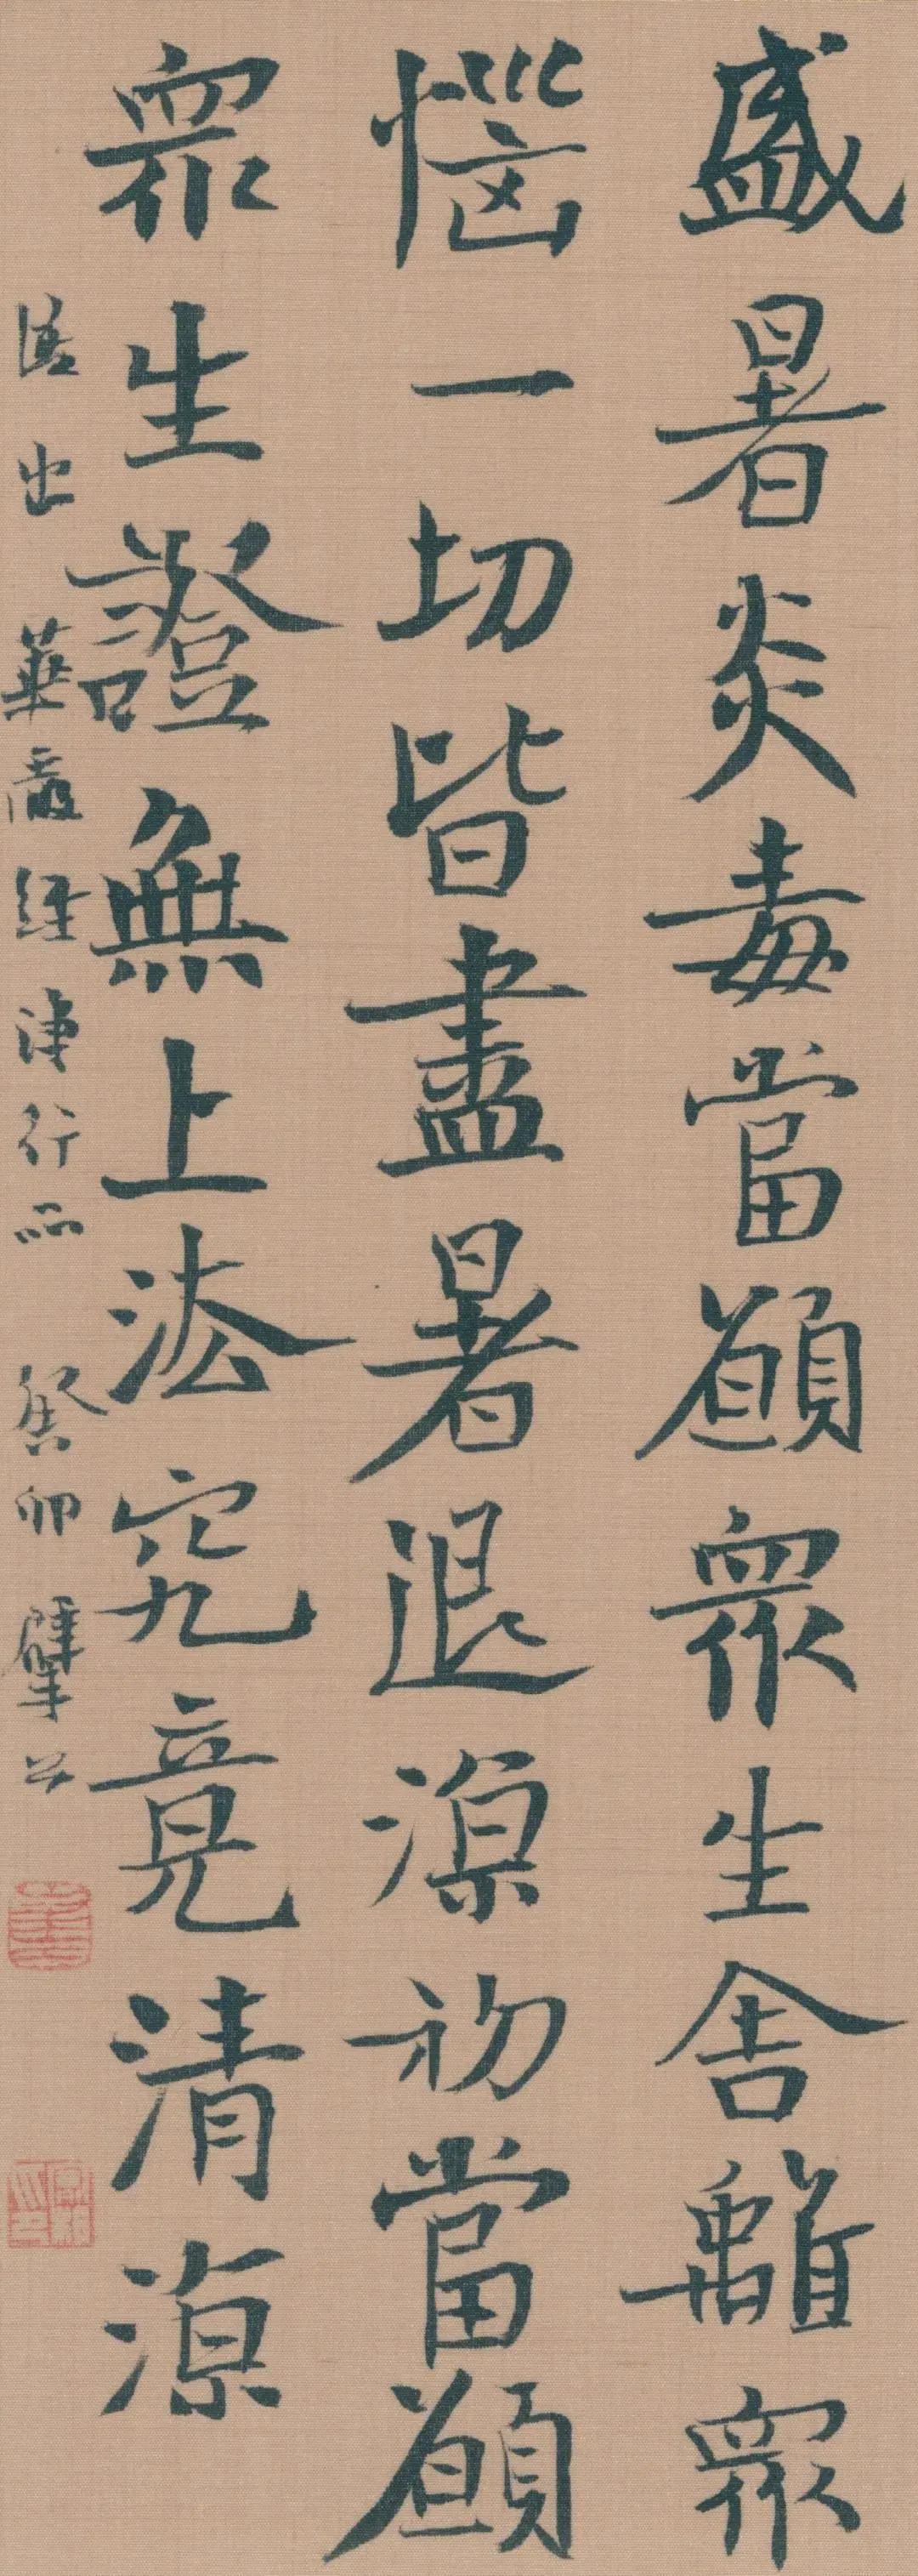 盛暑炎毒當願眾生舍離眾
惱一切皆盡暑退涼初當願
眾生證無上法究竟清涼
語出華嚴經淨行品癸卯肇公